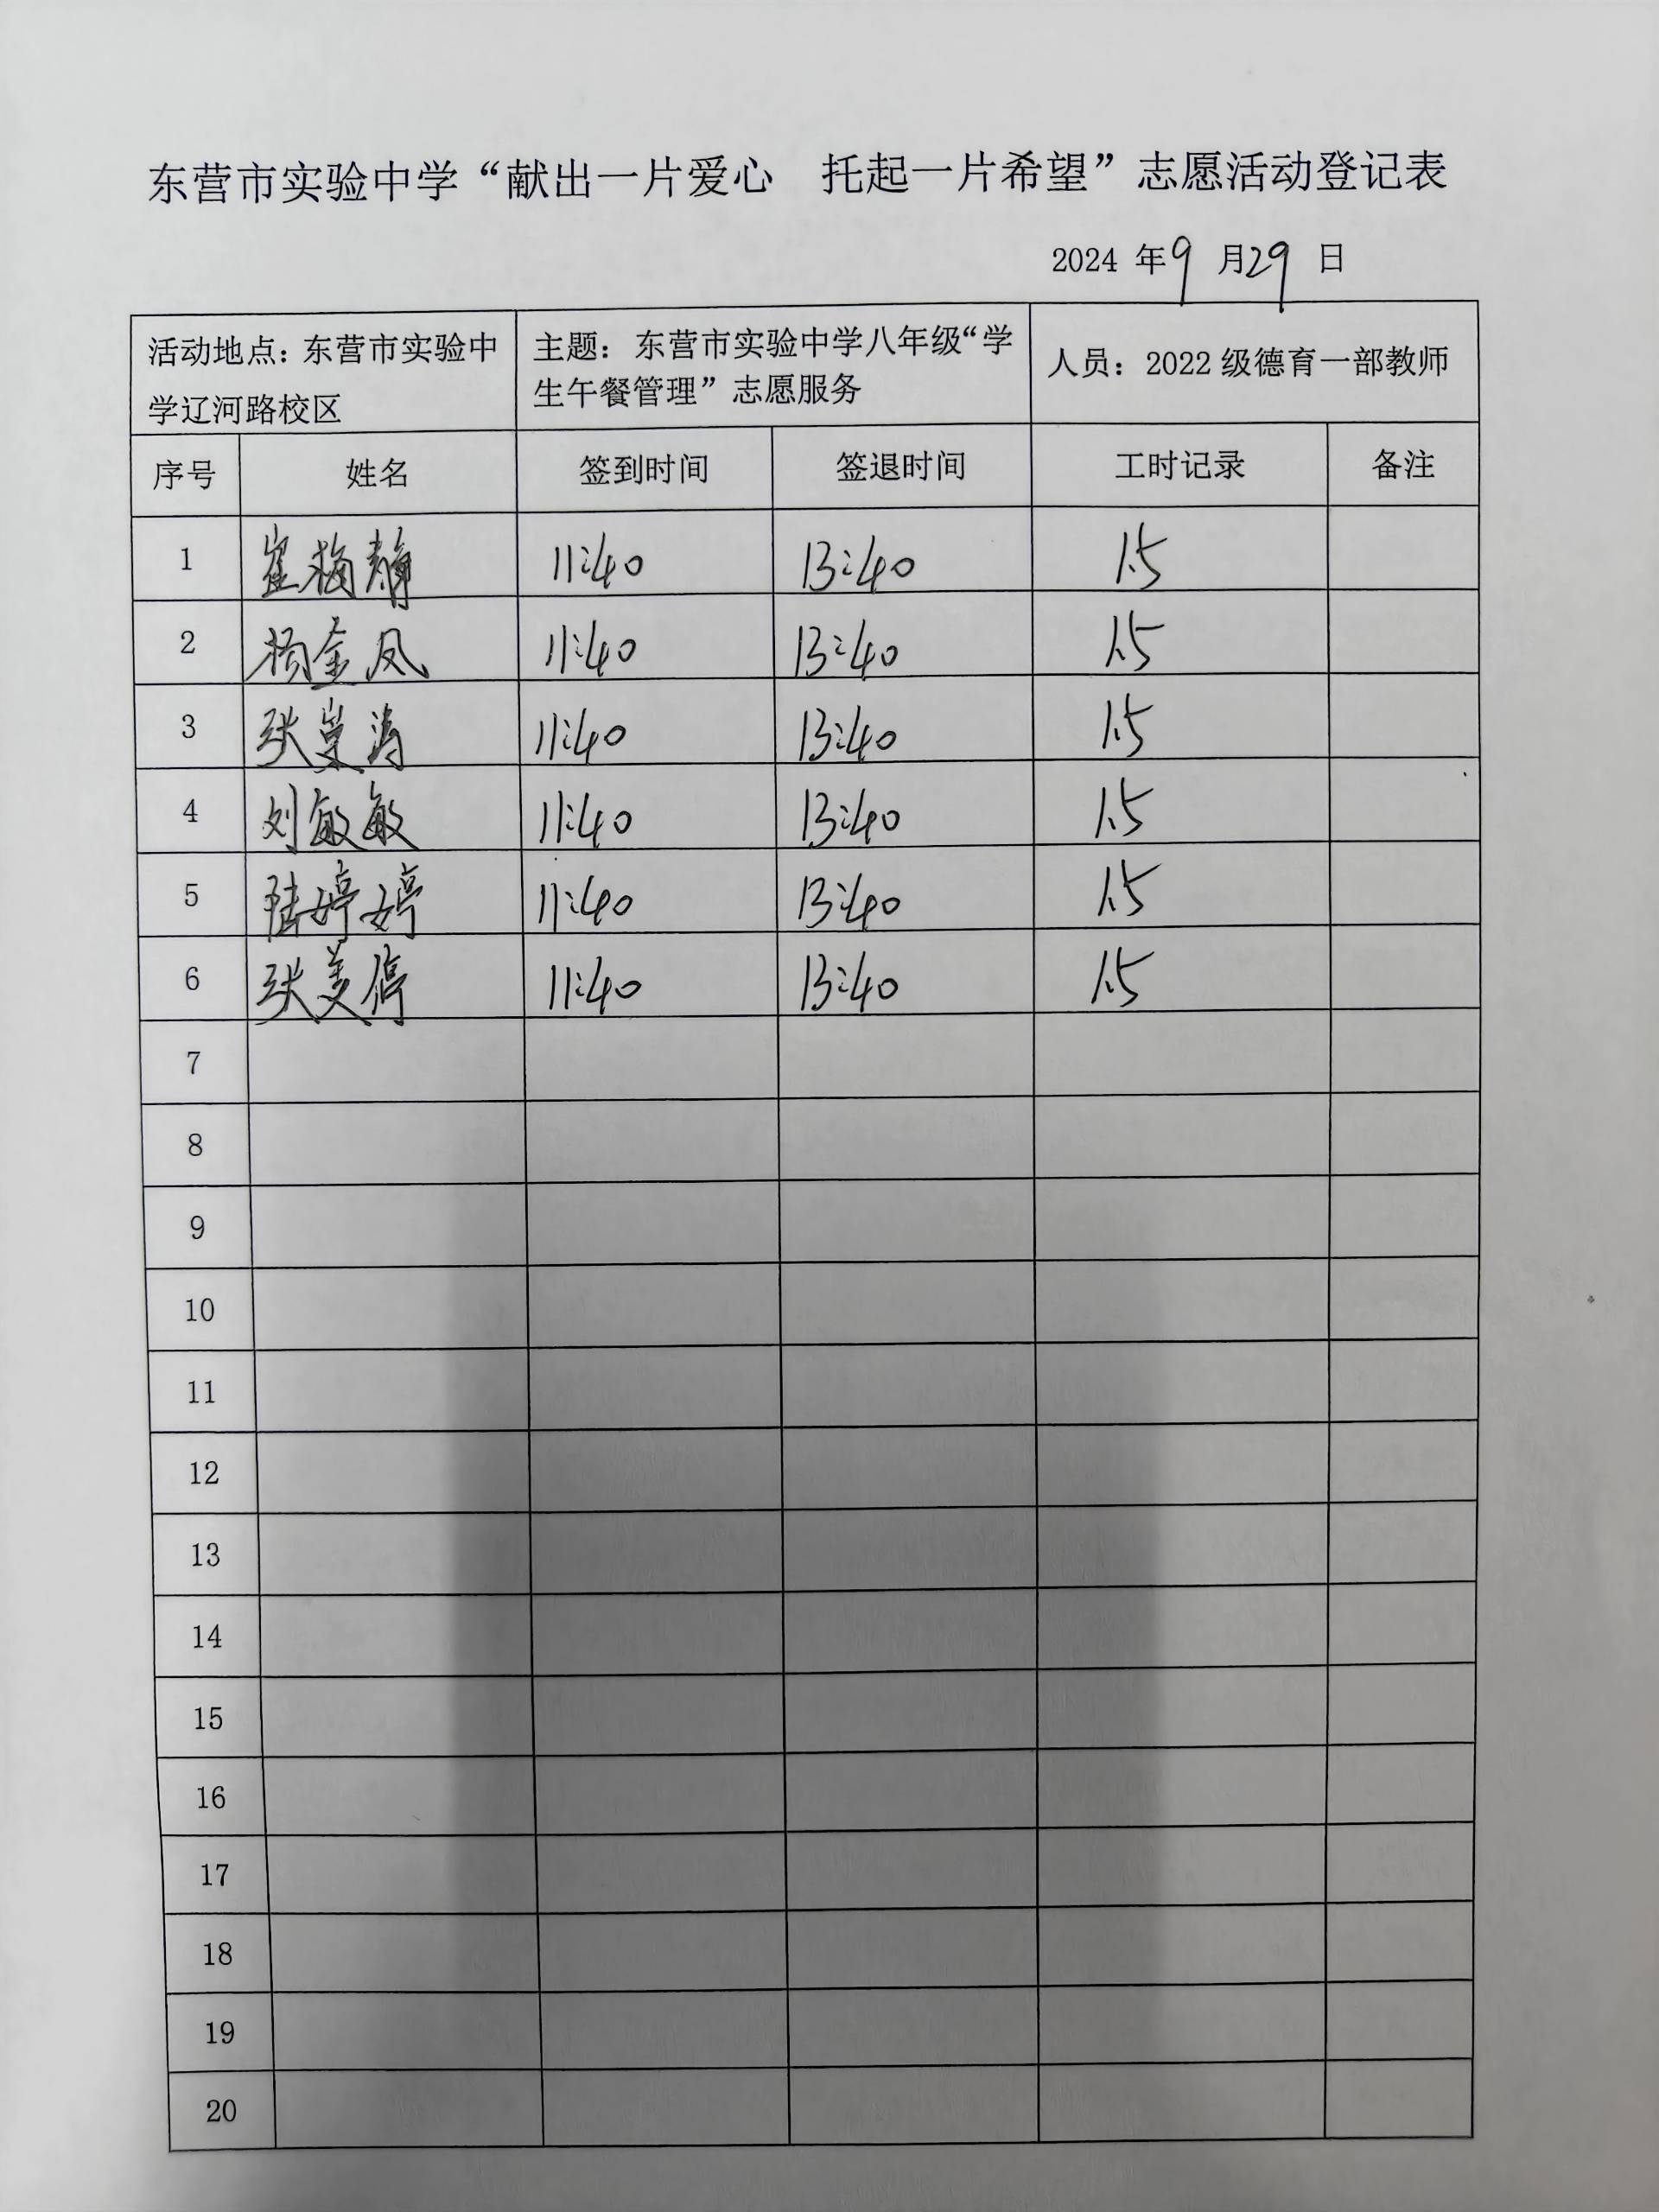 东营市实验中学“献出一片爱心 托起一片希望”志愿活动登记表
2024 年 9 月 29 日
活动地点：东营市实验中
学辽河路校区
主题：东营市实验中学八年级“学
生午餐管理”志愿服务
人员：2022 级德育一部教师
序号 姓名 签到时间 签退时间 工时记录 备注
1 崔梅静 11:40 13:40 1.5
2 杨金凤 11:40 13:40 1.5
3 张 涛 11:40 13:40 1.5
4 刘敏敏 11:40 13:40 1.5
5 陆婷婷 11:40 13:40 1.5
6 张美停 11:40 13:40 1.5
7
8
9
10
11
12
13
14
15
16
17
18
19
20